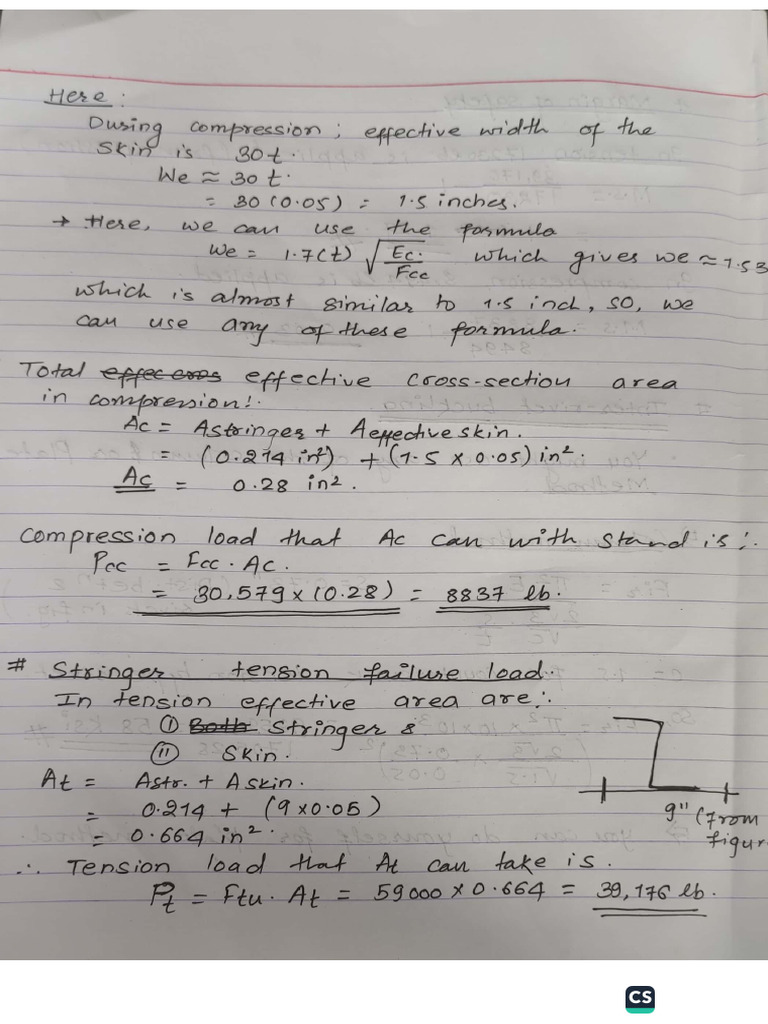 Here:
During compression; effective width of the
skin is 30t.
We ≈ 30t.
= 30(0.05) = 1.5 inches.
→ Here, we can use the formula
We = 1.7(t) √(Ec./Fcc) which gives we ≈ 1.53
which is almost similar to 1.5 inch, so, we
can use any of these formula.
Total effective cross-section area
in compression:.
Ac = Astringer + Aeffective skin.
= (0.214 in²) + (1.5 x 0.05) in².
Ac = 0.28 in².
Compression load that Ac can with stand is:.
Pcc = Fcc. Ac.
= 30,579 x (0.28) = 8837 lb.
# Stringer tension failure load.
In tension effective area are:.
(i) Both Stringer &
(ii) Skin.
At = Astr. + Askin.
= 0.214 + (9 x 0.05)
= 0.664 in².
9" (from
figur
∴ Tension load that At can take is.
Pt = Ftu. At = 59000 x 0.664 = 39,176 lb.
CS